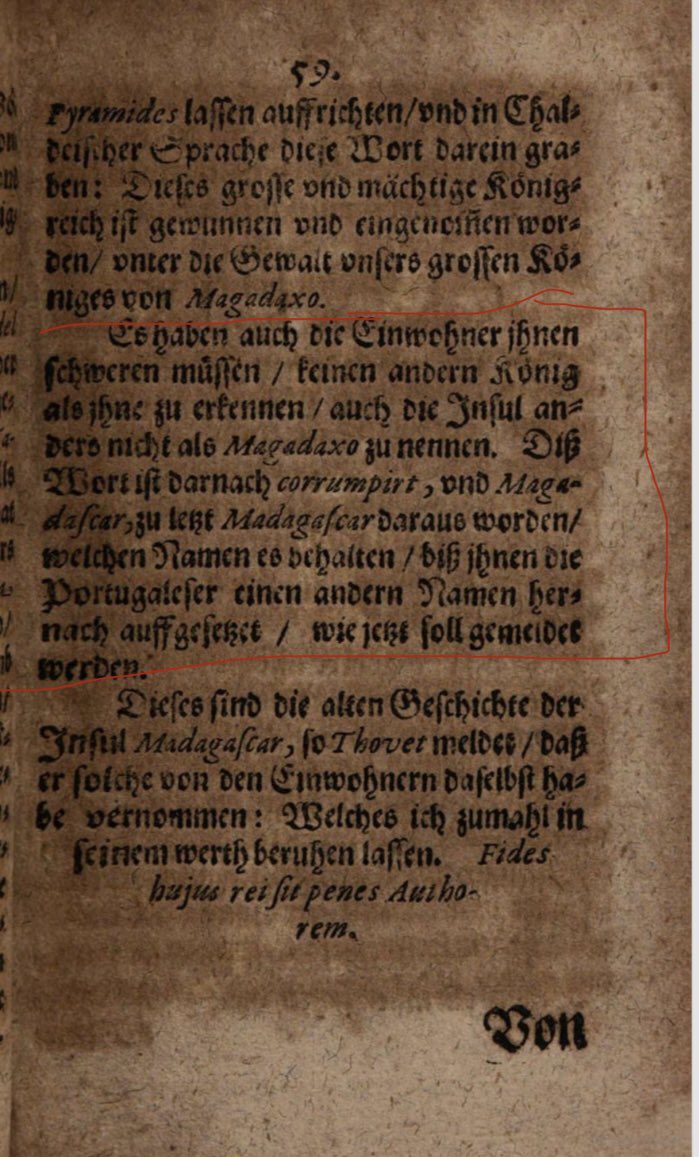 59.
Pyramides lassen auffrichten/vnd in Chal⸗
deischer Sprache diese Wort darein gra⸗
ben: Dieses grosse vnd mächtige König⸗
reich ist gewunnen vnd eingenom̃en wor⸗
den/ vnter die Gewalt vnsers grossen Kö⸗
niges von Magadaxo.
Es haben auch die Einwohner jhnen
schweren müssen / keinen andern König
als jhne zu erkennen / auch die Insul an⸗
ders nicht als Magadaxo zu nennen. Diß
Wort ist darnach corrumpirt, vnd Maga-
dascar, zu letzt Madagascar daraus worden/
welchen Namen es behalten / biß jhnen die
Portugaleser einen andern Namen her⸗
nach auffgesetzet / wie jetzt soll gemeldet
werden.
Dieses sind die alten Geschichte der
Insul Madagascar, so Thovet meldet / daß
er solche von den Einwohnern daselbst ha⸗
be vernommen: Welches ich zumahl in
seinem werth beruhen lassen. Fides
hujus rei sit penes Autho-
rem.
Von